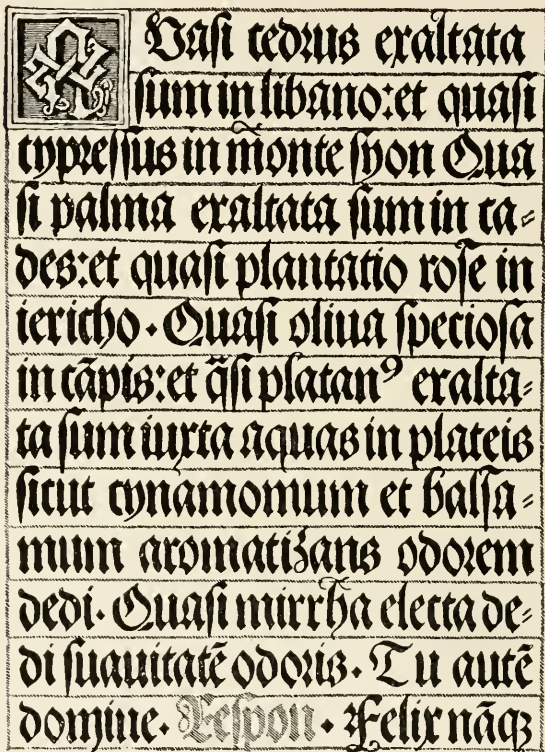 QUasi cedrus exaltata
sum in libano: et quasi
cypressus in mōnte syon Qua
si palma exaltata sum in ca⸗
des: et quasi plantatio rose in
iericho · Quasi oliua speciosa
in cāpis: et q̄si platanꝰ exalta⸗
ta sum iuxta aquas in plateis
sicut cynamomum et balsa⸗
mum aromatizans odorem
dedi. Quasi mirrha electa de⸗
di suauitatē odoris. Tu autē
domine. Respon. Felix nāqꝫ